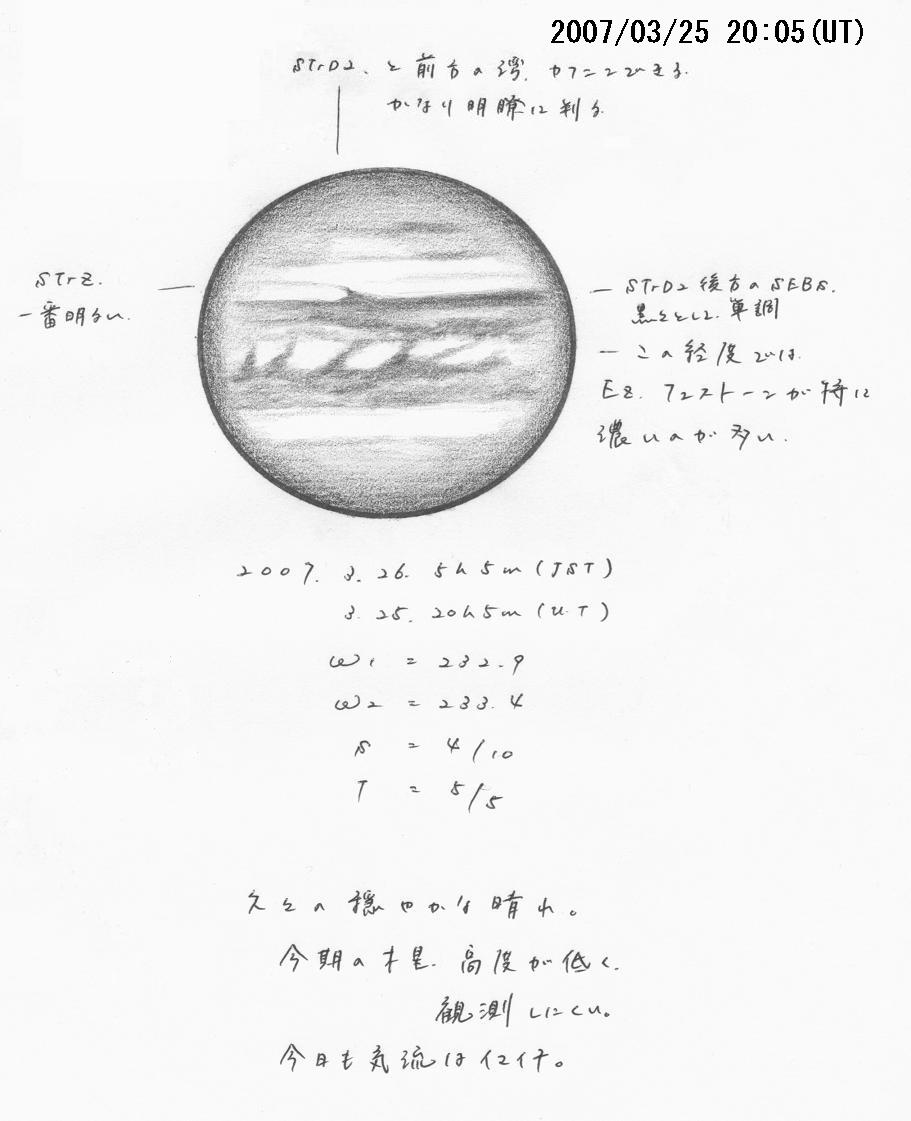 2007/03/25 20:05(UT)
STrD2. と前方の湾. カクニンできる.
かなり明瞭に判る.
STrZ.
一番明るい.
STrD2 後方の SEBs.
黒々として. 単調
この経度では.
EZ. フェストーンが特に
濃いのが多い.
2007. 3. 26. 5h 5m (JST)
3. 25. 20h 5m (U.T)
ω1 = 232.9
ω2 = 233.4
S = 4/10
T = 5/5
久々の穏やかな晴れ。
今期の木星. 高度が低く.
観測しにくい。
今日も気流はイマイチ。